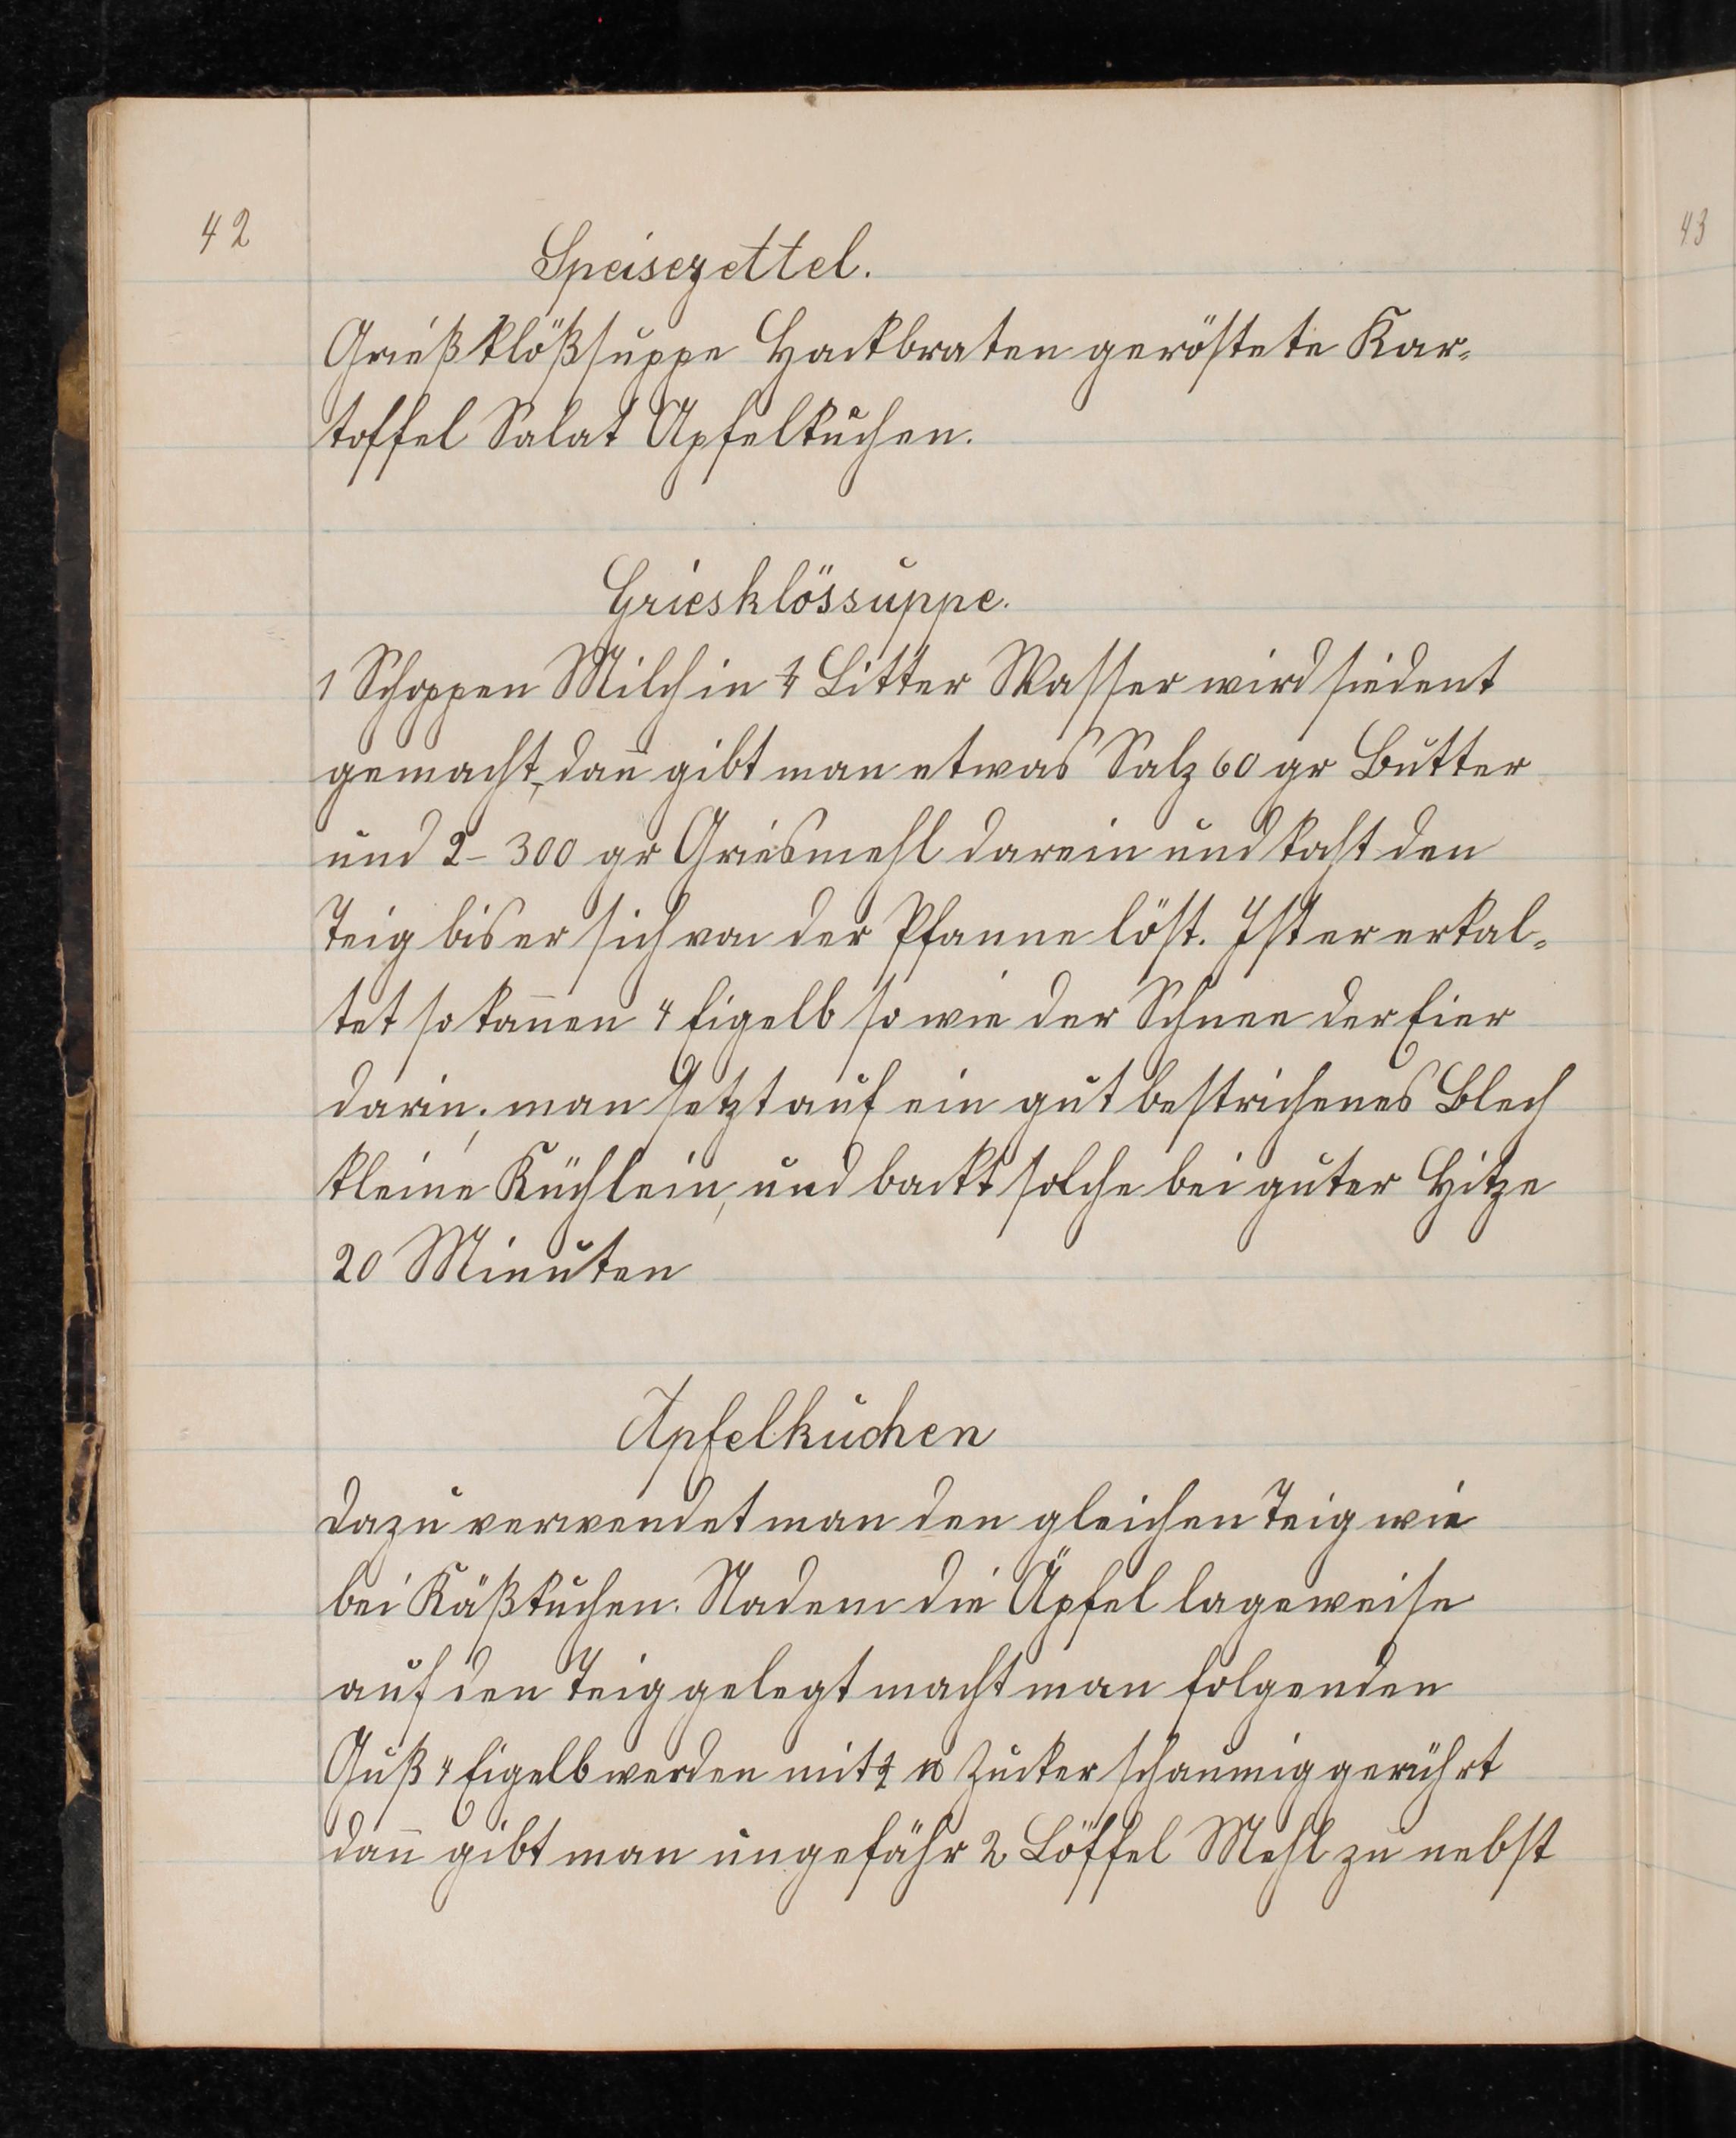 42
43
Speisezettel.
Grießklößsuppe Hackbraten geröstete Kar-
toffel Salat Apfelkuchen.
Griesklössuppe.
1 Schoppen Milch in ¼ Litter Wasser wird siedent
gemacht, dan̄ gibt man etwas Salz 60 gr Butter
und 2-300 gr Griesmehl darein und kocht den
Teig bis er sich von der Pfanne löst. Ist er erkal-
tet so kom̄en 4 Eigelb so wie der Schnee der Eier
darin; man setzt auf ein gut bestrichenes Blech
kleine Küchlein, und backt solche bei guter Hitze
20 Minuten
Apfelkuchen
Dazu verwendet man den gleichen Teig wie
bei Käßkuchen. Nadem die Äpfel lageweise
auf den Teig gelegt macht man folgenden
Guß 4 Eigelb werden mit Zucker schaumig gerührt
dan̄ gibt man ungefähr 2 Löffel Mehl zu nebst